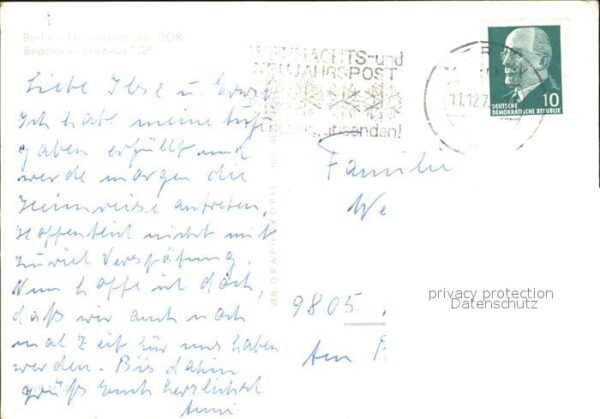 Berlin - Hauptstadt der DDR
Берлин — столица ГДР
WEIHNACHTS- und
NEUJAHRSPOST
einsenden!
11.12.7
DEUTSCHE
DEMOKRATISCHE REPUBLIK 10
Liebe Ilse u.
Ich habe meine Auf-
gaben erfüllt und
werde morgen die
Heimreise antreten,
hoffentlich nicht mit
zuviel Verspätung.
Nun hoffe ich doch,
daß wir auch noch
mal Zeit für uns haben
werden. Bis dahin
grüßt Euch herzlichst
Anni
VEB GRAPHOKOPIE
Familie
We
9805
Am
privacy protection
Datenschutz